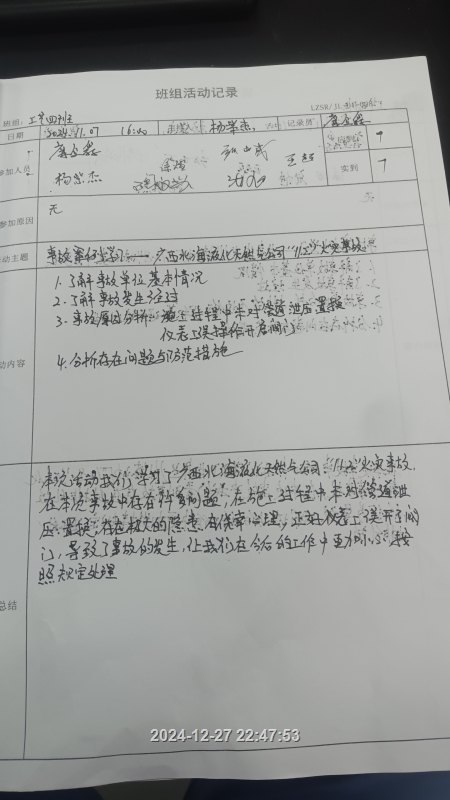 班组活动记录
LZSR/JL-
班组：工艺四班
日期 2024.11.07 16:00 主持人 杨荣杰 记录员
参加人员 杨荣杰 王超 应到 7
实到 7
未参加原因 无
活动主题 事故案例学习——广西北海液化天然气公司"11.2"火灾事故
活动内容
1.了解事故单位基本情况
2.了解事故发生经过
3.事故原因分析：施工过程中未对管道泄压置换
仪表工误操作开启阀门
4.分析存在问题与防范措施
总结
本次活动我们学习了广西北海液化天然气公司"11.2"火灾事故，
在本次事故中存在许多问题，在施工过程中未对管道泄
压、置换，存在极大的隐患，有侥幸心理，正好仪表工误开了阀
门，导致了事故的发生，让我们在今后的工作中更加小心，按
照规定处理
2024-12-27 22:47:53